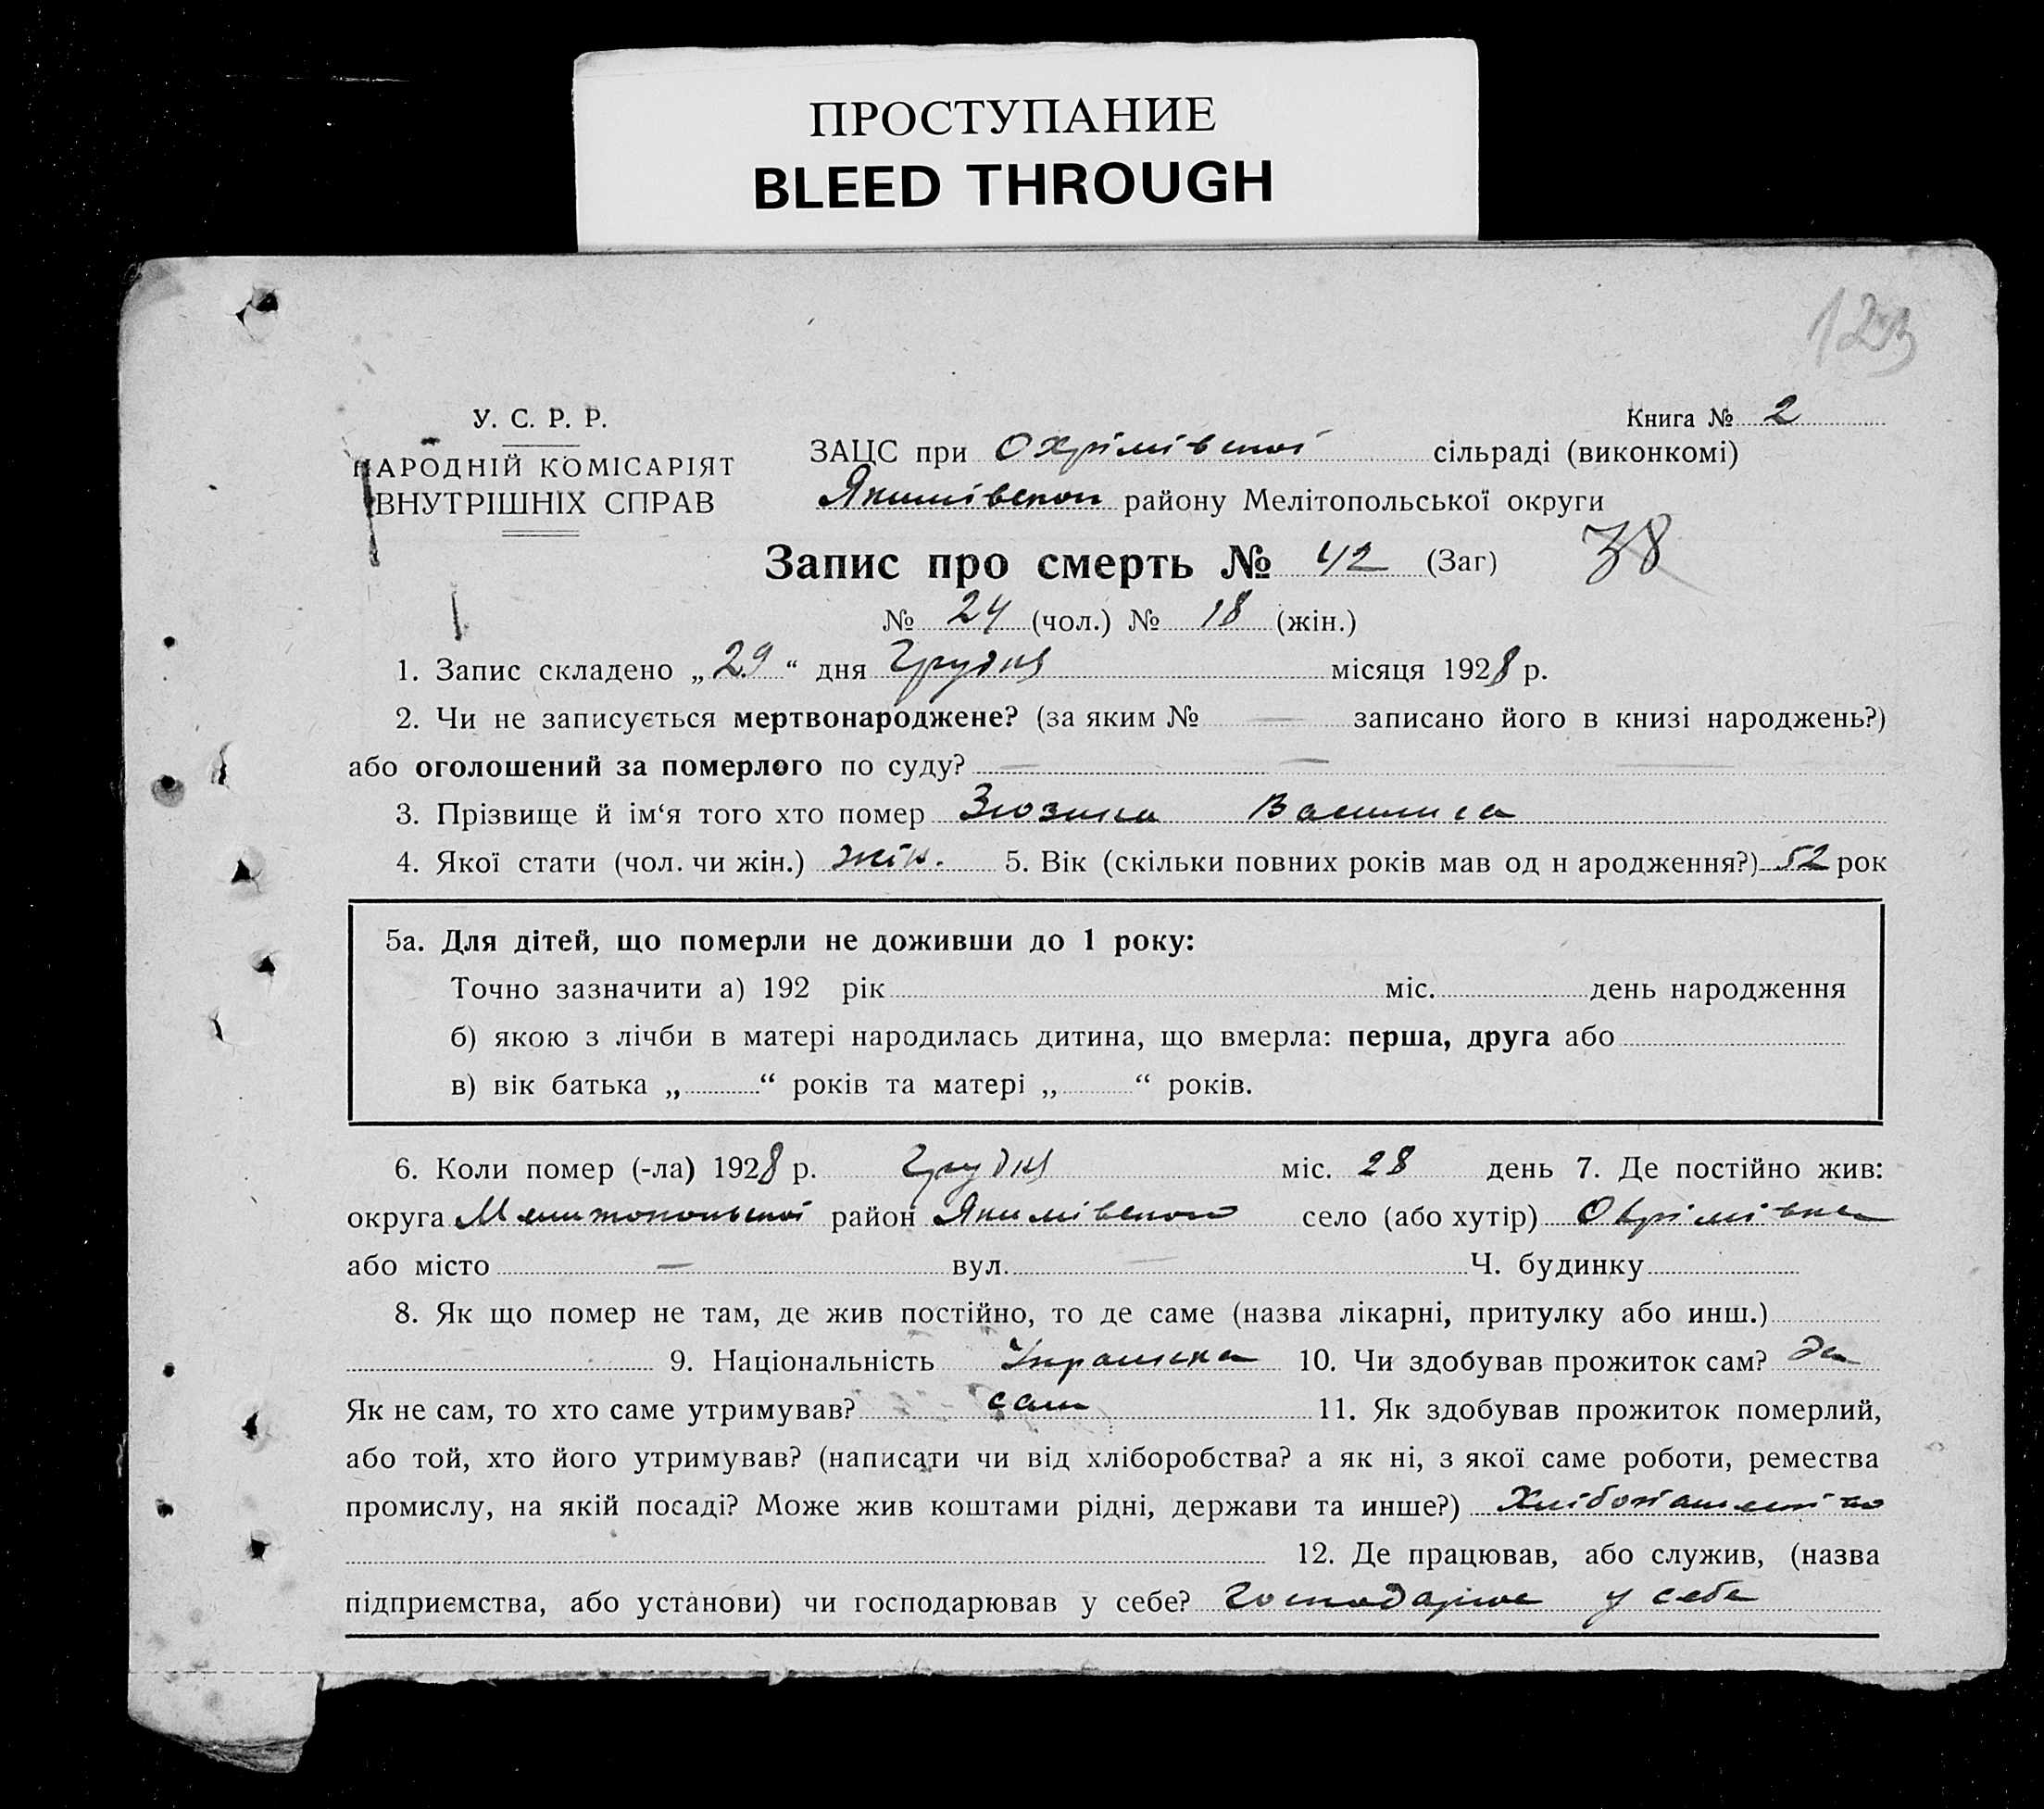 ПРОСТУПАНИЕ
BLEED THROUGH
123
У. С. Р. Р.
НАРОДНІЙ КОМІСАРІЯТ
ВНУТРІШНІХ СПРАВ
Книга № 2
ЗАЦС при Охрімівської сільраді (виконкомі)
Якимівского району Мелітопольської округи
Запис про смерть № 42 (Заг) 38
№ 24 (чол.) № 18 (жін.)
1. Запис складено „ 29 “ дня Грудня місяця 1928 р.
2. Чи не записується мертвонароджене? (за яким № — записано його в книзі народжень?)
або оголошений за померлого по суду? — — —
3. Прізвище й ім‘я того хто помер Зюзина Василиса
4. Якої стати (чол. чи жін.) жін. 5. Вік (скільки повних років мав од н ародження?) 52 рок
5а. Для дітей, що померли не доживши до 1 року:
Точно зазначити а) 192 рік міс. день народження
б) якою з лічби в матері народилась дитина, що вмерла: перша, друга або
в) вік батька „ “ років та матері „ “ років.
6. Коли помер (-ла) 1928 р. Грудня міс. 28 день 7. Де постійно жив:
округа Мелитопольської район Якимівского село (або хутір) Охрімівка
або місто — вул. — Ч. будинку
8. Як що помер не там, де жив постійно, то де саме (назва лікарні, притулку або инш.)
9. Національність Українка 10. Чи здобував прожиток сам? да
Як не сам, то хто саме утримував? сам 11. Як здобував прожиток померлий,
або той, хто його утримував? (написати чи від хліборобства? а як ні, з якої саме роботи, ремества
промислу, на якій посаді? Може жив коштами рідні, держави та инше?)
12. Де працював, або служив, (назва
підприємства, або установи) чи господарював у себе? Господарює у себе